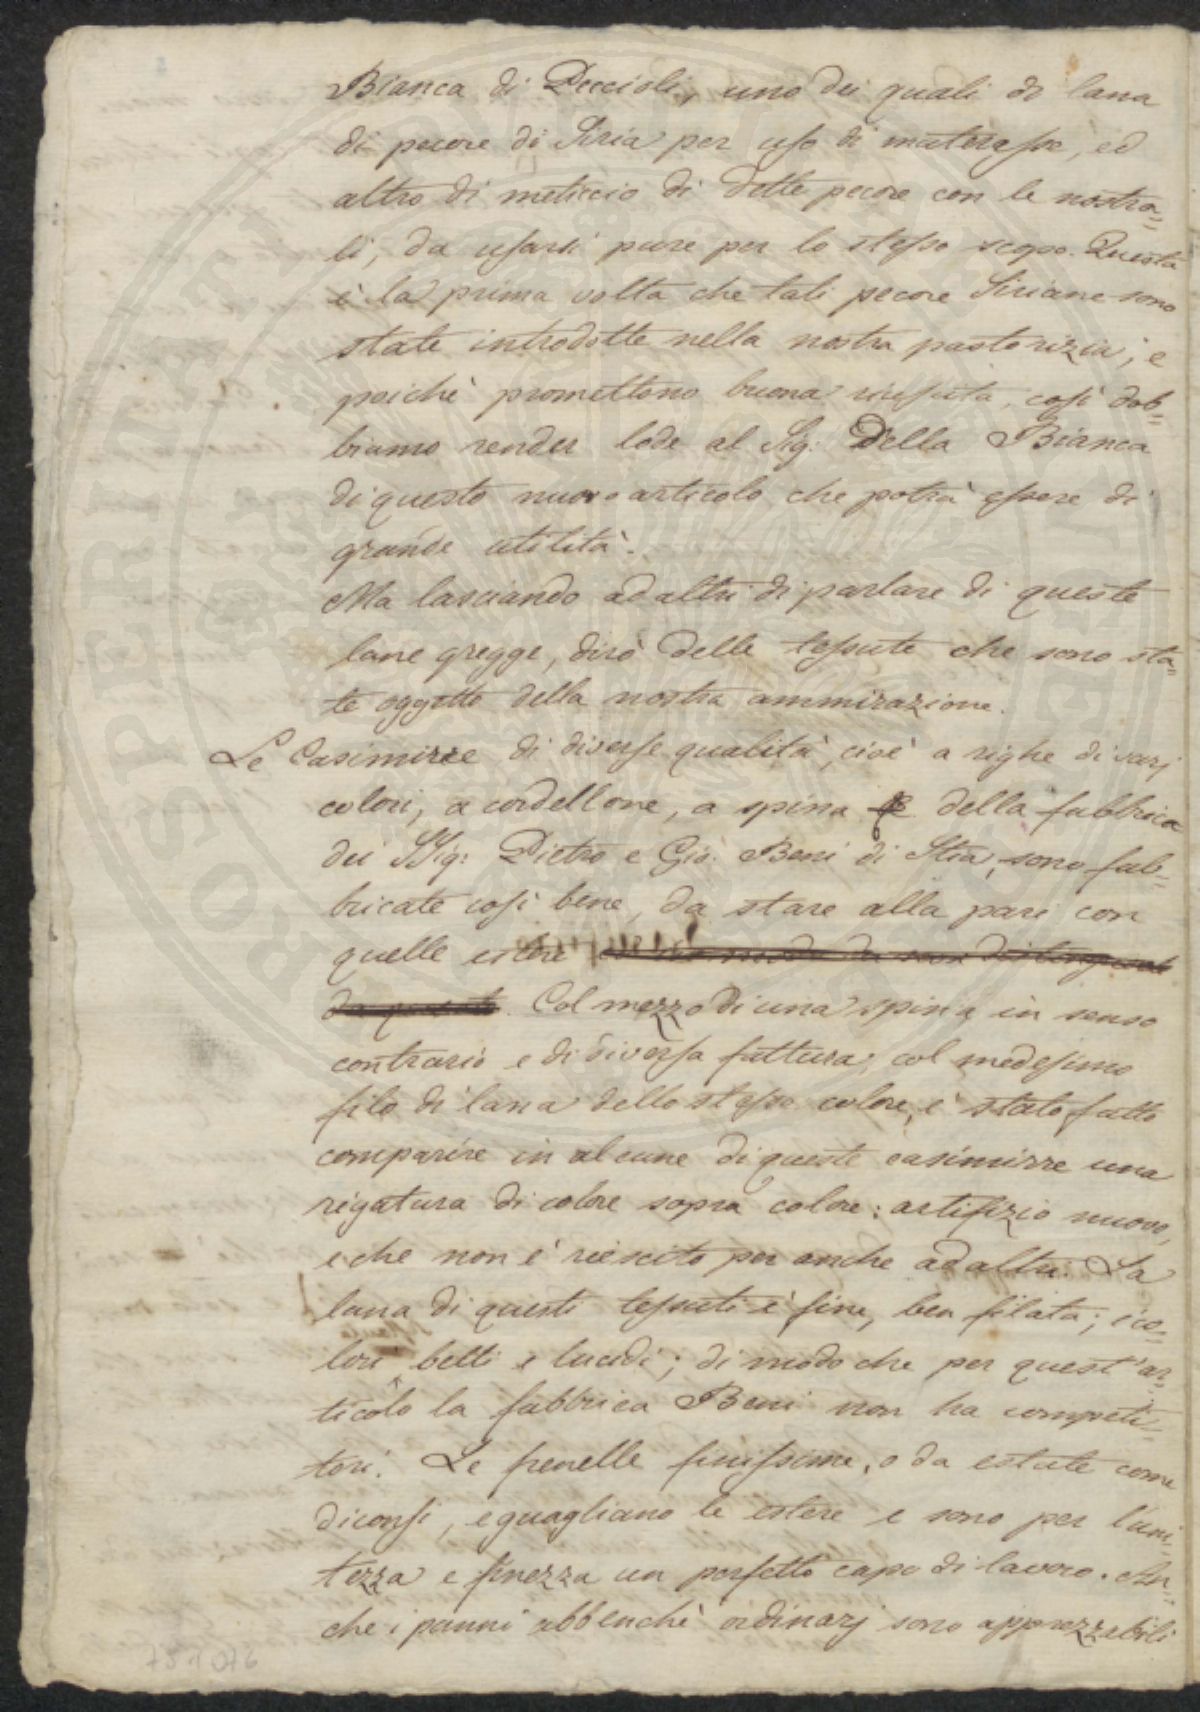 Bianca di Peccioli, uno dei quali di lana
di pecore di Siria per uso di materasse, ed
altro di meticcio di dette pecore con le nostra=
li, da usarsi pure per lo stesso scopo. Questa
è la prima volta che tali pecore Siriane sono
state introdotte nella nostra pastorizia; e
poichè promettono buona riuscita, così dob=
biamo render lode al Sig: Della Bianca
di questo nuovo articolo che potrà essere di
grande utilità.
Ma lasciando ad altri di parlare di queste
lane gregge, dirò delle tessute che sono sta=
te oggetto della nostra ammirazione.
Le Casimirre di diverse qualità, cioè a righe di varj
colori, a cordellone, a spina della fabbrica
dei SSig: Pietro e Gio: Beni di Stia, sono fab=
bricate così bene, da stare alla pari con
quelle estere da non distinguerle
da queste. Col mezzo di una spina in senso
contrario e di diversa fattura, col medesimo
filo di lana dello stesso colore, è stato fatto
comparire in alcune di queste casimirre una
rigatura di colore sopra colore: artifizio nuovo,
e che non è riescito per anche ad altri. La
lana di questi tessuti è fine, ben filata; i co=
lori belli e lucidi; di modo che per quest'ar=
ticolo la fabbrica Beni non ha competi=
tori. Le frenelle finissime, o da estate come
diconsi, eguagliano le estere e sono per l'uni=
tezza e finezza un perfetto capo di lavoro. An=
che i panni abbenchè ordinarj sono apprezzabili